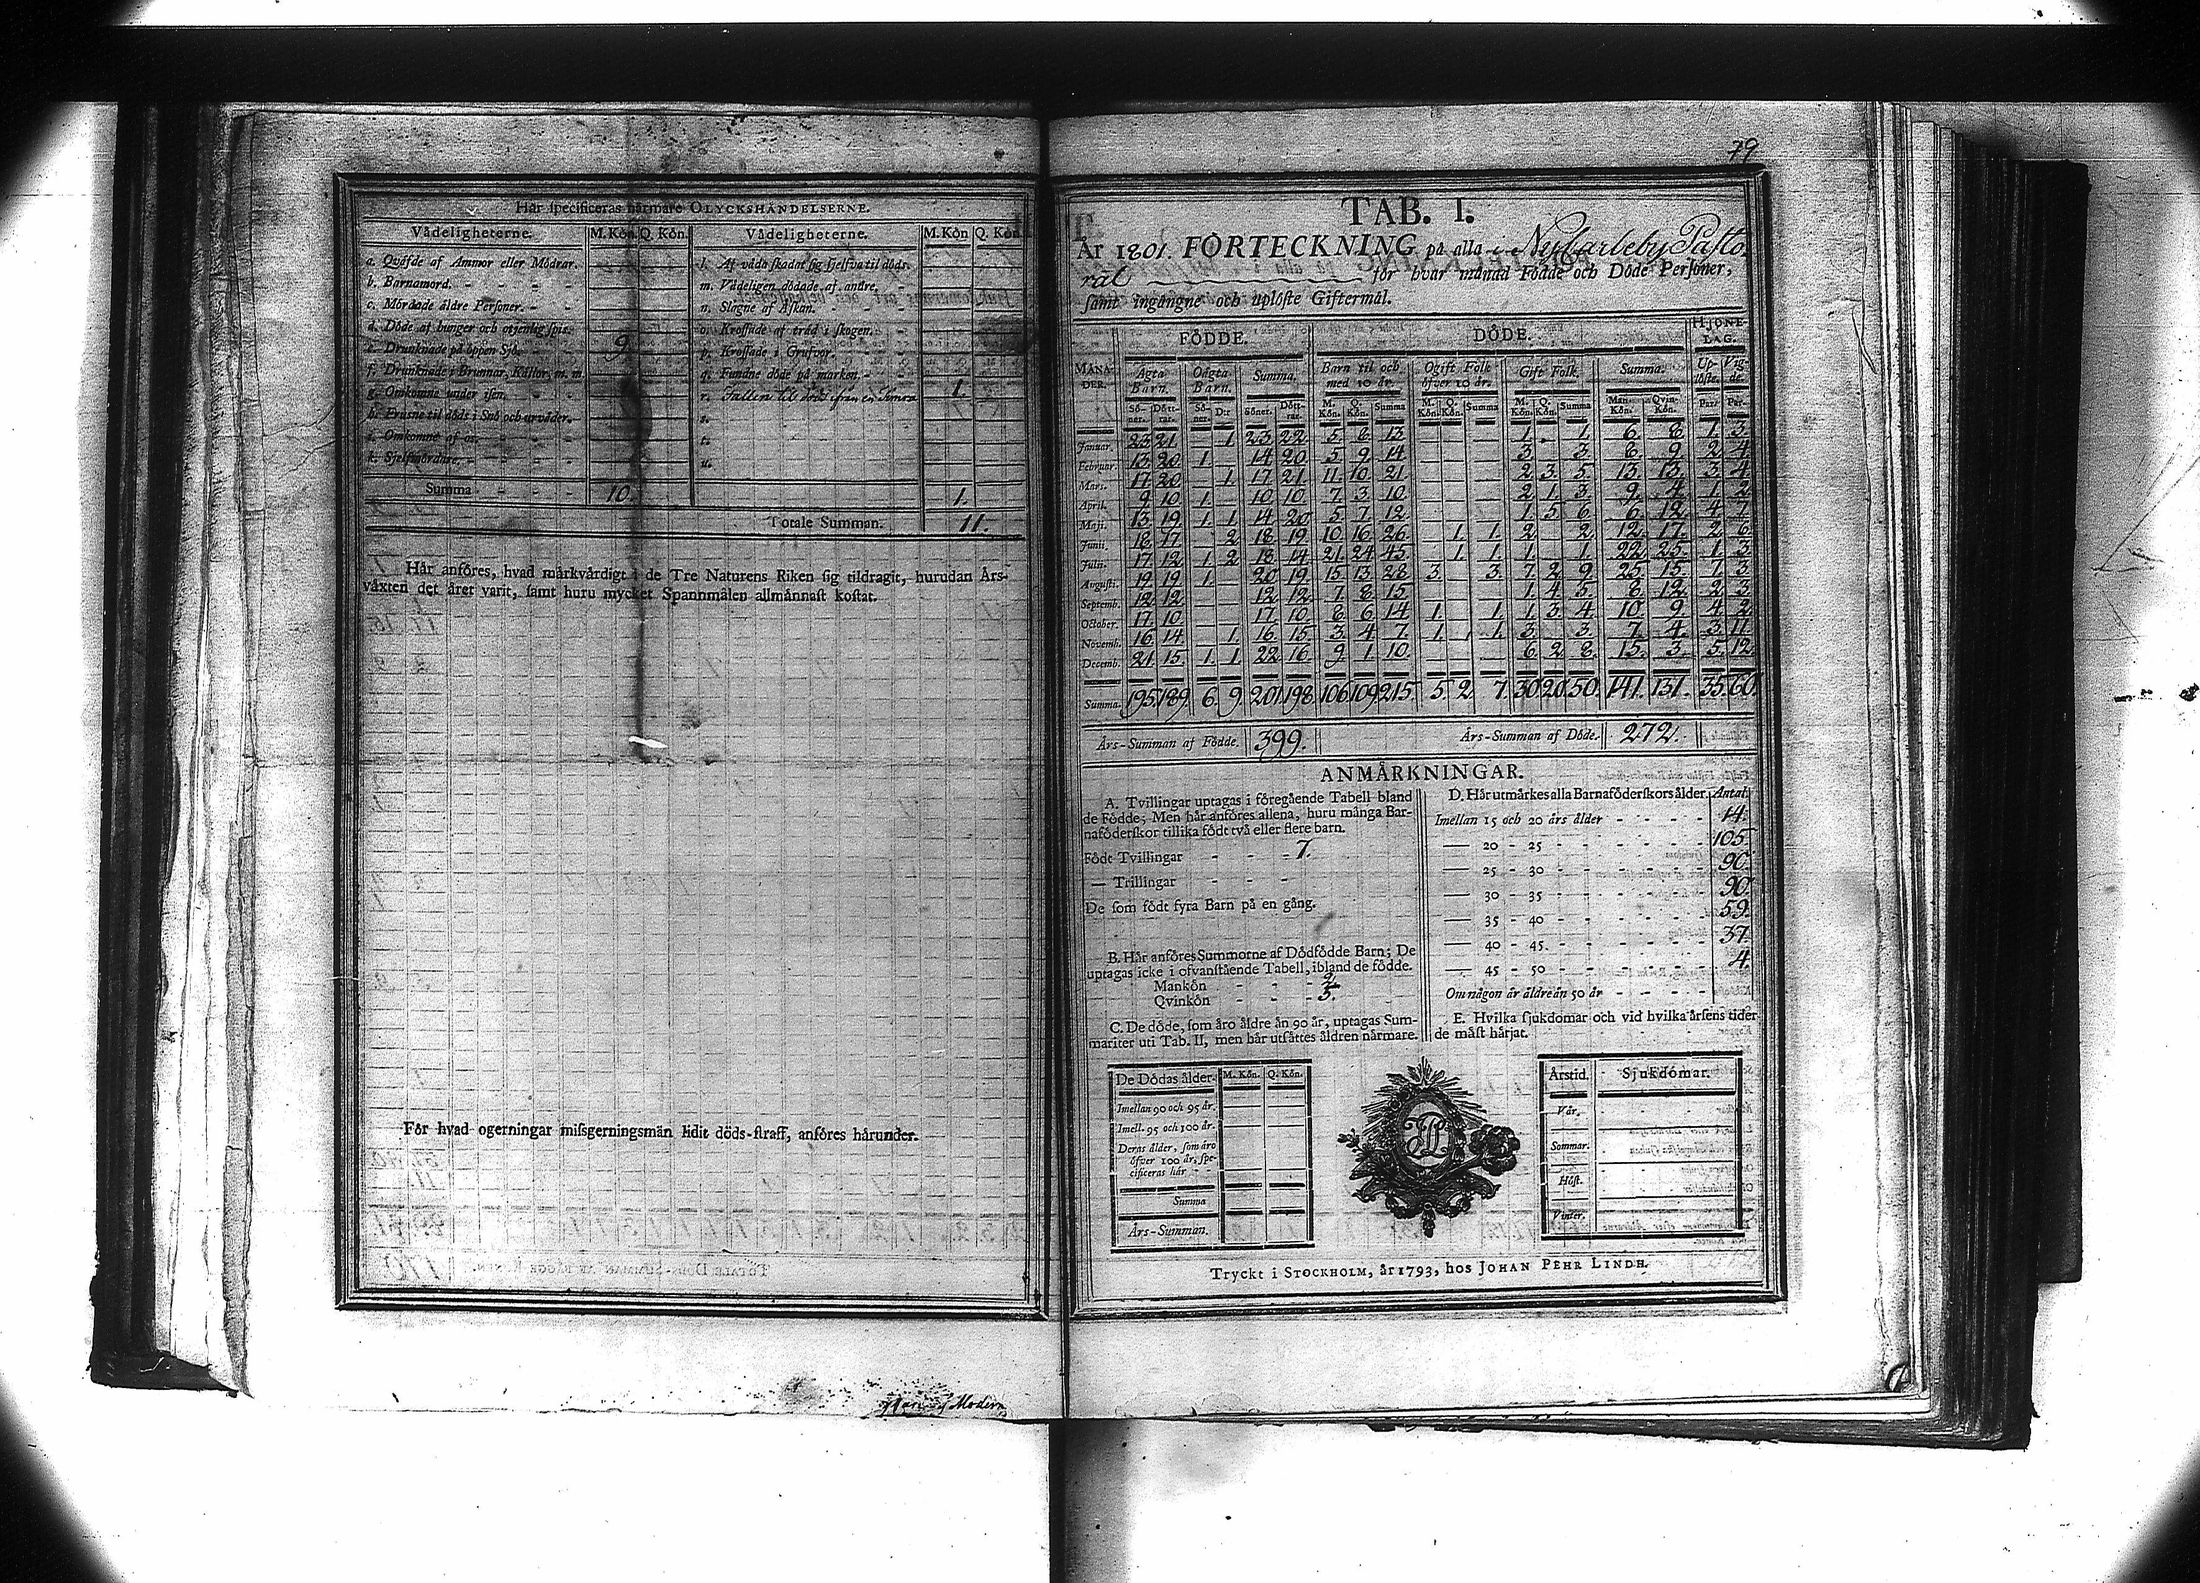 Här ſpecificeras närmare OLYCKSHÄNDELSERNE.
Vådeligheterne. M. Kön. Q. Kön. Vådeligheterne. M. Kön Q. Kön.
a. Qväfde af Ammor eller Mödrar. l. Af våda ſkadat ſig ſjelfva til döds.
b. Barnamord. m. Vådeligen dödade af andre.
c. Mördade äldre Perſoner. n. Slagne af Åſkan.
d. Döde af hunger och otjenlig ſpis. o. Kroſſade af träd i ſkogen.
e. Drunknade på öppen Sjö. 9. p. Kroſſade i Grufvor.
f. Drunknade i Brunnar, Källor, m. m. q. Fundne döde på marken.
g. Omkomne under iſen. r. Fallen til död ifrån en 1.
h. Fruſne til döds i Snö och urväder. s.
i. Omkomne af os. t.
k. Sjelfmördare. u.
Summa 10. 1.
Totale Summan. 11.
Här anföres, hvad märkvärdigt i de Tre Naturens Riken ſig tildragit, hurudan Års-
växten det året varit, ſamt huru mycket Spannmålen allmännaſt koſtat.
För hvad ogerningar miſsgerningsmän lidit döds-ſtraff, anföres härunder.
79
TAB. I.
År 1801. FÖRTECKNING på alla i Nykarleby Paſto-
rat för hvar månad Födde och Döde Perſoner,
ſamt ingångne och uplöſte Giftermål.
FÖDDE. DÖDE. HJONE-LAG.
MÅNA-DER. Ägta Barn. Oägta Barn. Summa. Barn til och med 10 år. Ogift Folk öfver 10 år. Gift Folk. Summa. Up-löſte. Vig-de.
Sö-ner. Dött-rar. Sö-ner D:r Söner. Dött-rar. M. Kön. Q. Kön. Summa M. Kön. Q. Kön. Summa M. Kön. Q. Kön. Summa Man-Kön. Qvin-Kön. Par. Par.
Januar. 23. 21. 1. 23. 22. 5. 8. 13. 1. 1. 6. 8. 1. 3.
Februar. 13. 20. 1. 14. 20. 5. 9. 14. 3. 3. 8. 9. 2. 4.
Mars. 17. 20. 1. 17. 21. 11. 10. 21. 2. 3. 5. 13. 13. 3. 4.
April. 9. 10. 1. 10. 10. 7. 3. 10. 2. 1. 3. 9. 4. 1. 2.
Maji. 13. 19. 1. 1. 14. 20. 5. 7. 12. 1. 5. 6. 6. 12. 4. 7.
Junii. 18. 17. 2. 18. 19. 10. 16. 26. 1. 1. 2. 2. 12. 17. 2. 6.
Julii. 17. 12. 1. 2. 18. 14. 21. 24. 45. 1. 1. 1. 1. 22. 25. 1. 3.
Auguſti. 19. 19. 1. 20. 19. 15. 13. 28. 3. 3. 7. 2. 9. 25. 15. 1. 3.
Septemb. 12. 12. 12. 12. 7. 8. 15. 1. 4. 5. 8. 12. 2. 3.
October. 17. 10. 17. 10. 8. 6. 14. 1. 1. 1. 3. 4. 10. 9. 4. 2.
Novemb. 16. 14. 1. 16. 15. 3. 4. 7. 1. 1. 3. 3. 7. 4. 3. 11.
Decemb. 21. 15. 1. 1. 22. 16. 9. 1. 10. 6. 2. 8. 15. 3. 5. 12.
Summa. 195. 189. 6. 9. 201. 198. 106. 109. 215. 5. 2. 7. 30. 20. 50. 141. 131. 35. 60.
Års-Summan af Födde. 399. Års-Summan af Döde. 272.
ANMÄRKNINGAR.
A. Tvillingar uptagas i föregående Tabell bland
de Födde; Men här anföres allena, huru många Bar-
naföderſkor tillika födt två eller flere barn.
Födt Tvillingar 7.
— Trillingar
De ſom födt fyra Barn på en gång.
B. Här anföres Summorne af Dödfödde Barn; De
uptagas icke i ofvanſtående Tabell, ibland de födde.
Mankön
Qvinkön 5.
C. De döde, ſom äro äldre än 90 år, uptagas Sum-
mariter uti Tab. II, men här utſättes åldren närmare.
De Dödas ålder. M. Kön. Q. Kön.
Imellan 90 och 95 år.
Imell. 95 och 100 år.
Deras ålder, ſom äro
öfver 100 år, ſpe-
cificeras här
Summa
Års-Summan.
D. Här utmärkes alla Barnaföderſkors ålder. Antal.
Imellan 15 och 20 års ålder 14.
— 20 - 25 105.
— 25 - 30 90.
— 30 - 35 90.
— 35 - 40 59.
— 40 - 45. 37.
— 45 - 50 4.
Om någon är äldre än 50 år
E. Hvilka ſjukdomar och vid hvilka årſens tider
de mäſt härjat.
Årstid. Sjukdomar.
Vår.
Sommar.
Höſt.
Vinter.
Tryckt i STOCKHOLM, år 1793, hos JOHAN PEHR LINDH.